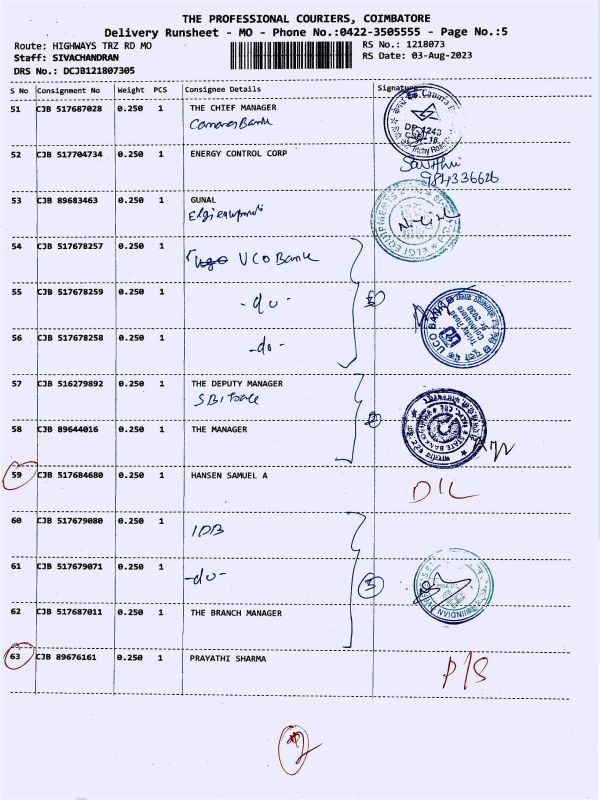 THE PROFESSIONAL COURIERS, COIMBATORE
Delivery Runsheet - MO - Phone No.:0422-3505555 - Page No.:5
Route: HIGHWAYS TRZ RD MO RS No.: 1218073
Staff: SIVACHANDRAN RS Date: 03-Aug-2023
DRS No.: DCJB121807305
S No Consignment No Weight PCS Consignee Details Signature
51 CJB 517687028 0.250 1 THE CHIEF MANAGER
Canara Bank
52 CJB 517704734 0.250 1 ENERGY CONTROL CORP
984336626
53 CJB 89683463 0.250 1 GUNAL
Elgi equipments
ELGI EQUIPMENTS
54 CJB 517678257 0.250 1 UCO Bank
55 CJB 517678259 0.250 1 -do-
UCO BANK
Trichy Road
Coimbatore
56 CJB 517678258 0.250 1 -do-
57 CJB 516279892 0.250 1 THE DEPUTY MANAGER
SBI
58 CJB 89644016 0.250 1 THE MANAGER
STATE BANK OF INDIA
59 CJB 517684680 0.250 1 HANSEN SAMUEL A
D/L
60 CJB 517679080 0.250 1 IOB
61 CJB 517679071 0.250 1 -do-
62 CJB 517687011 0.250 1 THE BRANCH MANAGER
63 CJB 89676161 0.250 1 PRAYATHI SHARMA
P/S